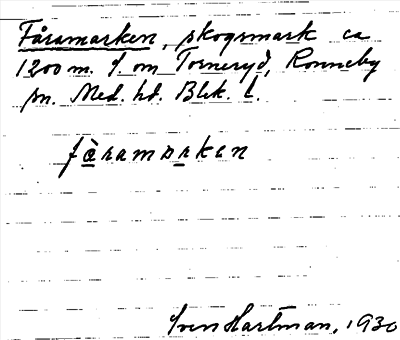 Fåramarken, skogsmark ca
1200 m. S. om Torneryd, Ronneby
sn. Med. hd. Blek. l.
fàramarken
Sven Hartman, 1930